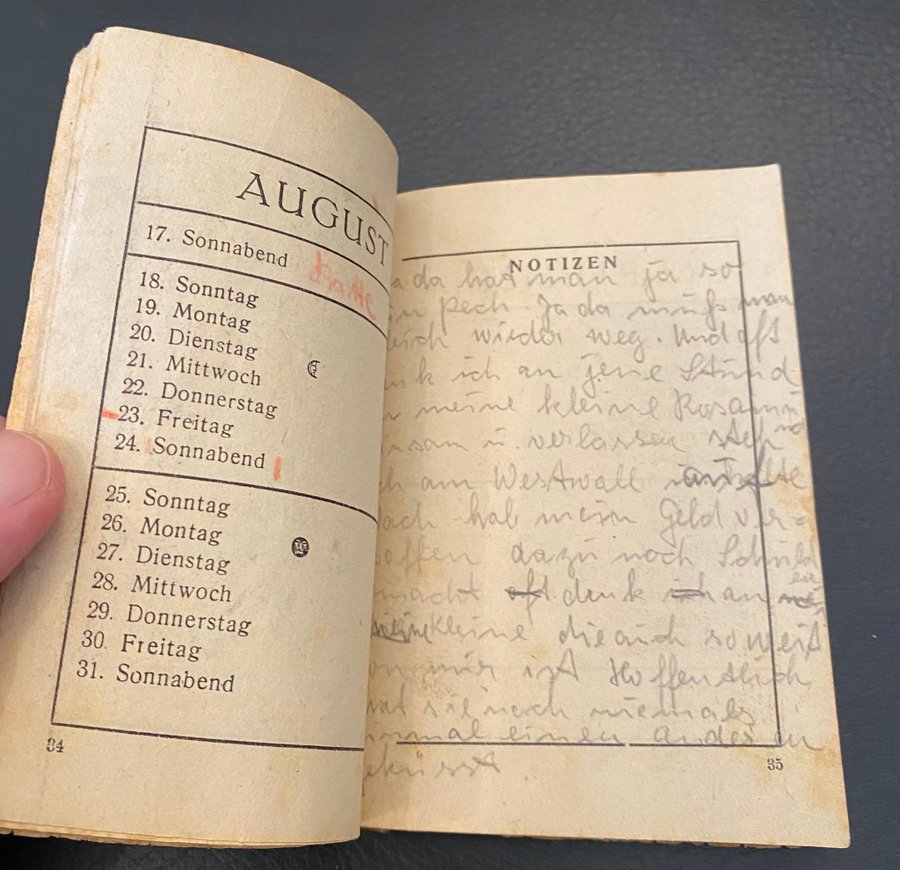 AUGUST
17. Sonnabend
18. Sonntag
19. Montag
20. Dienstag
21. Mittwoch
22. Donnerstag
23. Freitag
24. Sonnabend
25. Sonntag
26. Montag
27. Dienstag
28. Mittwoch
29. Donnerstag
30. Freitag
31. Sonnabend
34
NOTIZEN
da hat man ja so
pech. Ja da muß man
wieder weg. Und oft
ich an jene Stund
meine kleine Rosamu
u. verlassen steh
am Westwall
hab mein Geld ver=
dazu noch Schuld
oft denk ich an
kleine die auch so weit
mir ist Hoffentlich
hat sie noch niemals
einen anderen
35